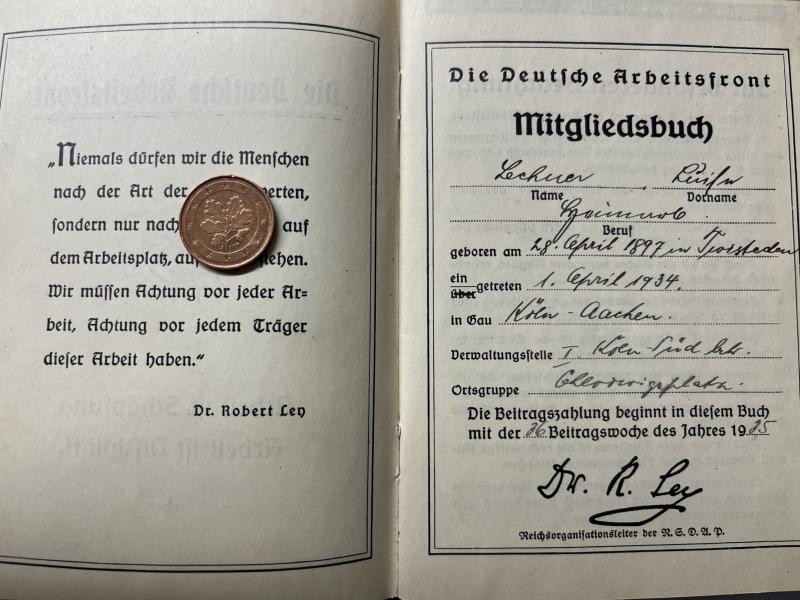 „Niemals dürfen wir die Menschen
nach der Art der erten,
sondern nur nach auf
dem Arbeitsplatz, au stehen.
Wir müssen Achtung vor jeder Ar=
beit, Achtung vor jedem Träger
dieser Arbeit haben.“
Dr. Robert Ley
Die Deutsche Arbeitsfront
Mitgliedsbuch
Lechner, Luise
Name Vorname
Beruf
geboren am 28. April 1897 in
ein
über getreten 1. April 1934.
in Gau Köln-Aachen.
Verwaltungsstelle I Köln-Süd
Ortsgruppe Chlodwigplatz.
Die Beitragszahlung beginnt in diesem Buch
mit der 26 Beitragswoche des Jahres 1935
Dr. R. Ley
Reichsorganisationsleiter der N.S.D.A.P.